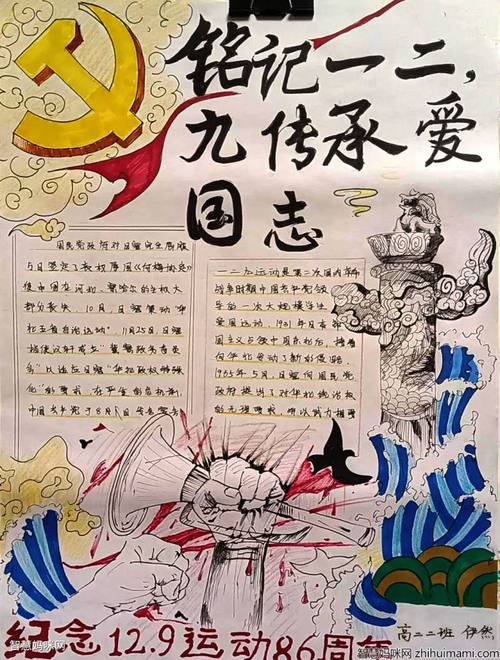 铭记一二,
九传承爱
国志
国民党政府对日冠完全屈服
5日签定了丧权辱国《何梅协定》
使中国在河北、察哈尔的主权大
部分丧失，10月，日冠策动“华
北五省自治运动”，11月25日，日冠
指使汉奸成立“冀
”以适应日冠“华北政权特殊
化”的要求，在严重的危机
中国共产党于8月1日发表
一二九运动是第二次国内革命
战争时期中国共产党领
导的一次大规模学生
爱国运动，1931年日本帝
国主义占领中国东北后，接着
向华北发动了新的侵略
年5月，日冠向国民党
政府提出了对华北统治权
的无理要求，并以武力相要
纪念12.9运动86周年
高二二班 伊然
智慧妈咪网
智慧妈咪网
zhihuimami.com